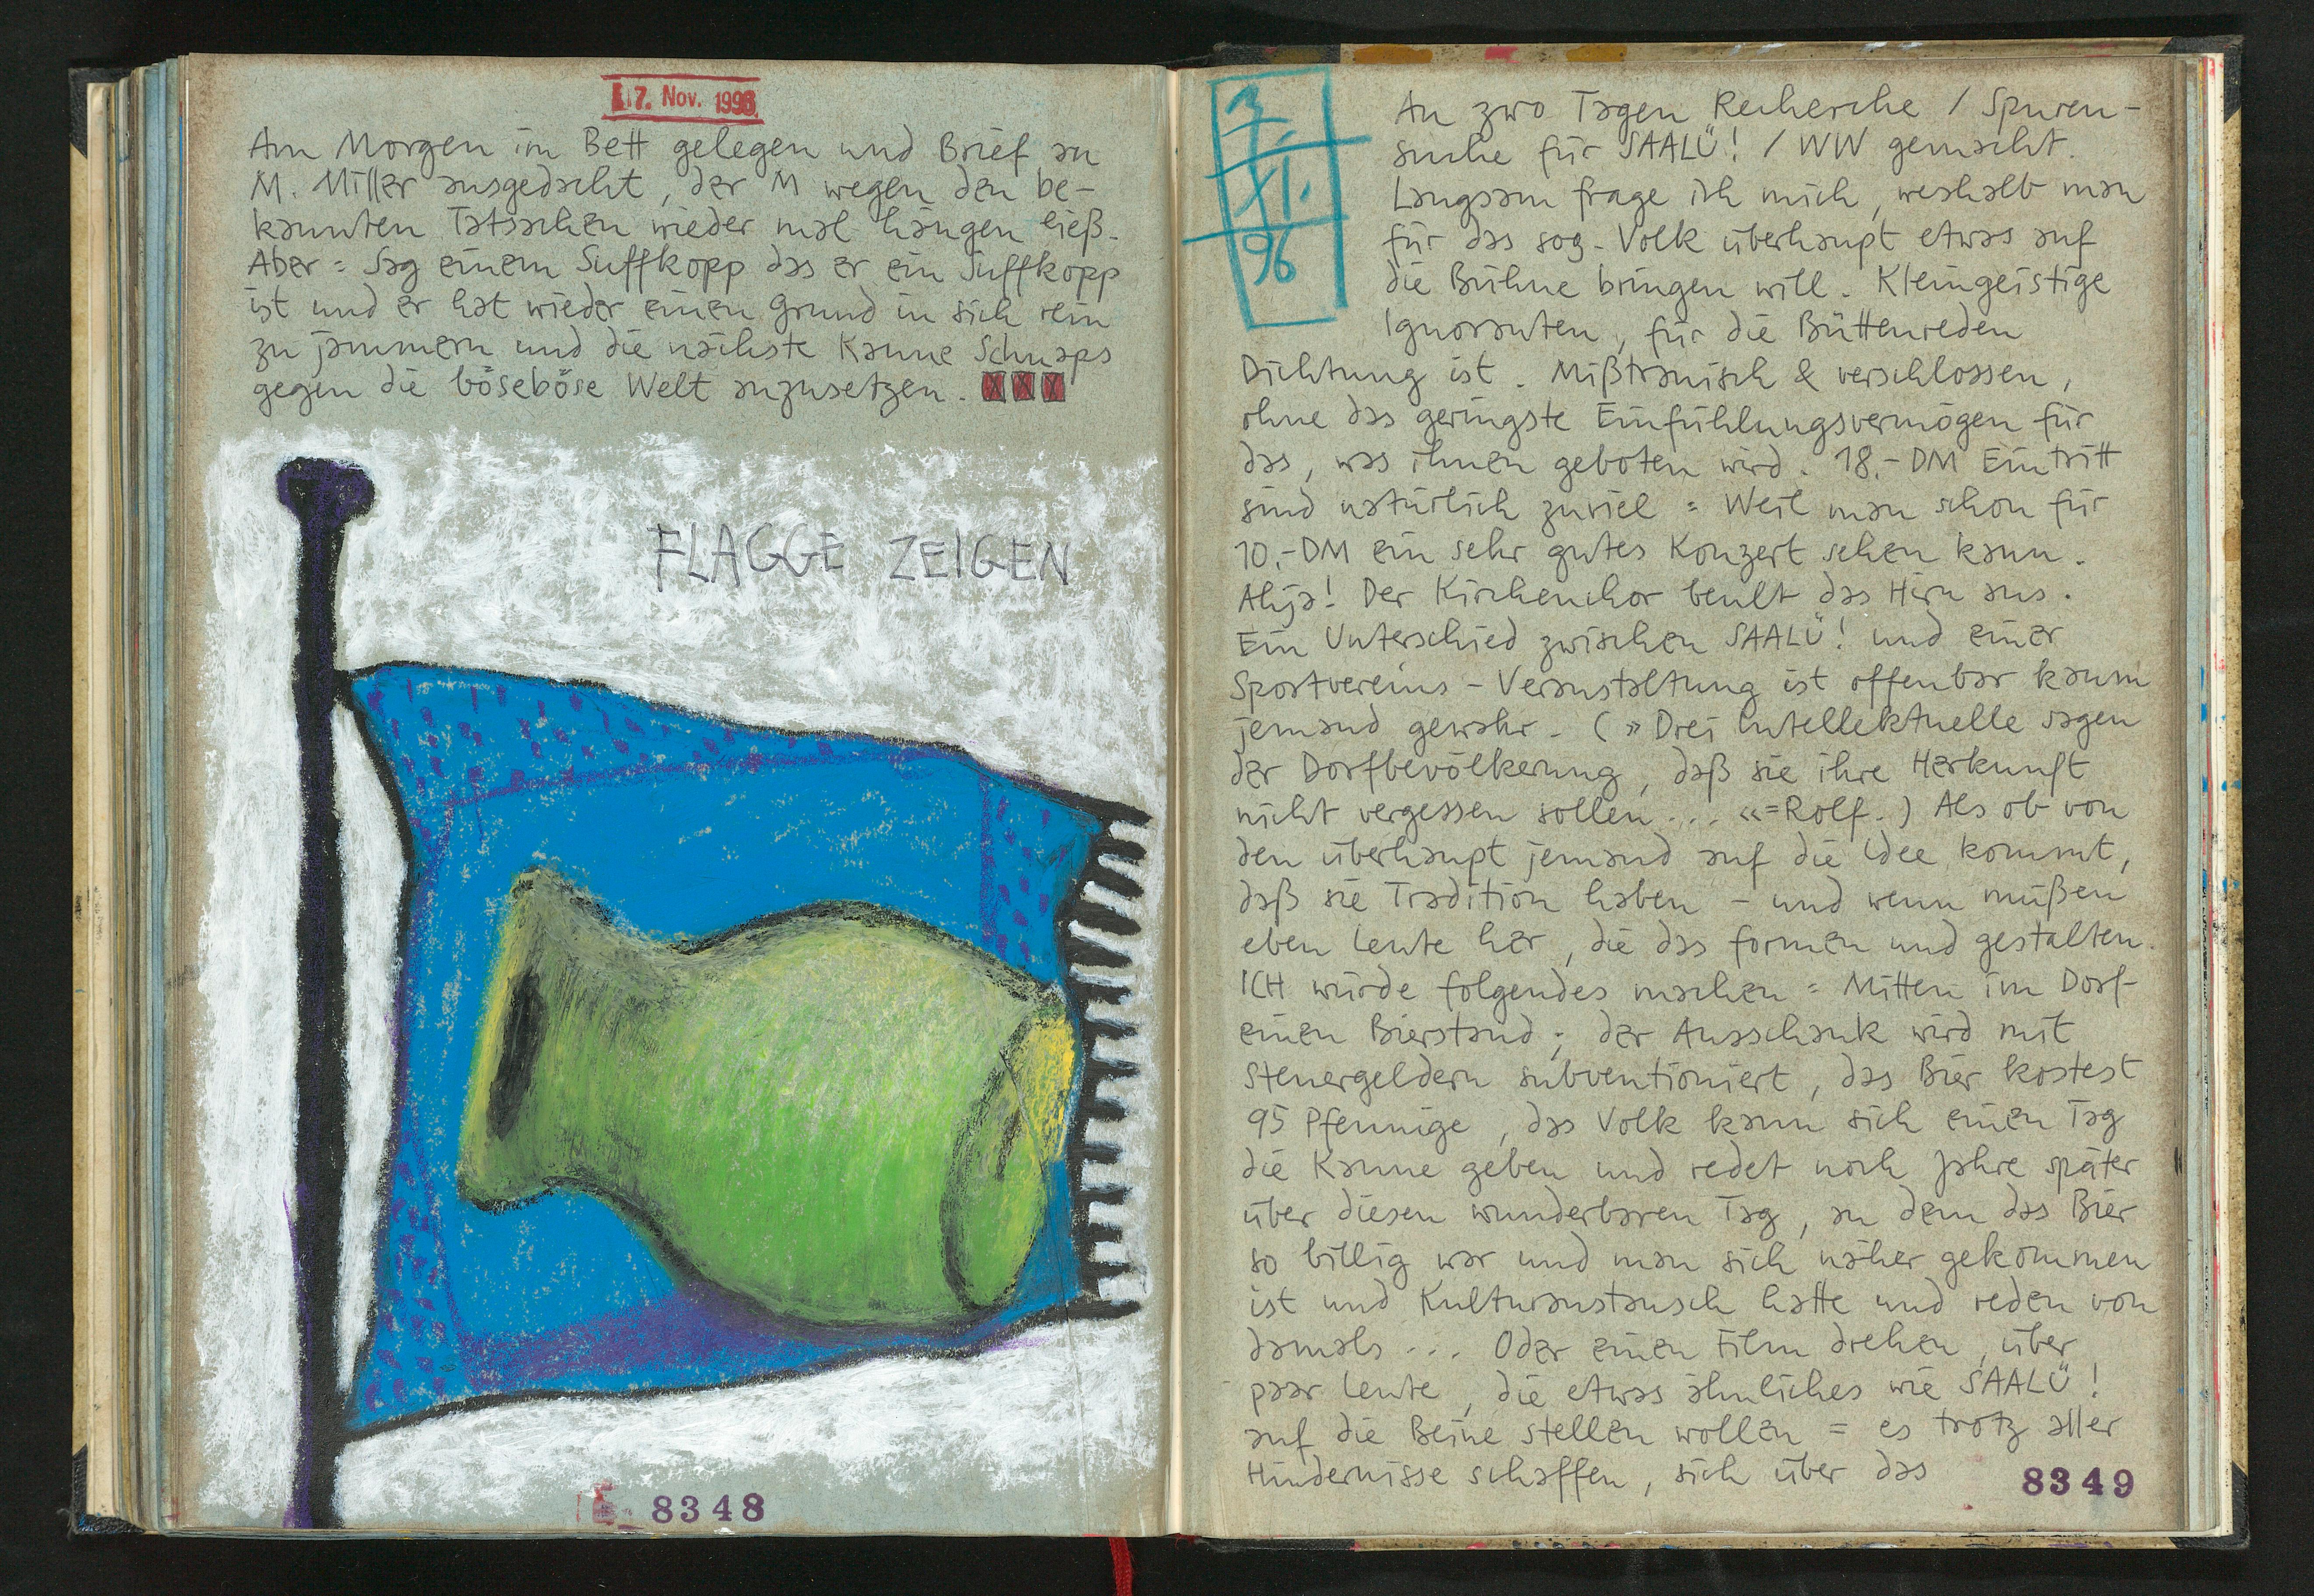 17. Nov. 1996
Am Morgen im Bett gelegen und Brief an
M. Miller ausgedacht, der M wegen den be-
kannten Tatsachen wieder mal hängen ließ.
Aber = Sag einem Suffkopp das er ein Suffkopp
ist und er hat wieder einen Grund in sich rein
zu jammern und die nächste Kanne Schnaps
gegen die böseböse Welt anzusetzen.
FLAGGE ZEIGEN
8348
7.
XI.
96
An zwo Tagen Recherche / Spuren-
suche für SAALÜ! / WW gemacht.
Langsam frage ich mich, weshalb man
für das sog. Volk überhaupt etwas auf
die Bühne bringen will. Kleingeistige
Ignoranten, für die Büttenreden
Dichtung ist. Mißtrauisch & verschlossen,
ohne das geringste Einfühlungsvermögen für
das, was ihnen geboten wird. 18.- DM Eintritt
sind natürlich zuviel = Weil man schon für
10.- DM ein sehr gutes Konzert sehen kann.
Ahja! Der Kirchenchor beult das Hirn aus.
Ein Unterschied zwischen SAALÜ! und einer
Sportvereins-Veranstaltung ist offenbar kaum
jemand gewahr. (»Drei Intellektuelle sagen
der Dorfbevölkerung, daß sie ihre Herkunft
nicht vergessen sollen... «=Rolf.) Als ob von
den überhaupt jemand auf die Idee kommt,
daß sie Tradition haben - und wenn müßen
eben Leute her, die das formen und gestalten.
ICH würde folgendes machen = Mitten im Dorf
einen Bierstand; der Ausschank wird mit
Steuergeldern subventioniert, das Bier kostest
95 Pfennige, das Volk kann sich einen Tag
die Kanne geben und redet noch Jahre später
über diesen wunderbaren Tag, an dem das Bier
so billig war und man sich näher gekommen
ist und Kulturaustausch hatte und reden von
damals... Oder einen Film drehen, über
paar Leute, die etwas ähnliches wie SAALÜ!
auf die Beine stellen wollen = es trotz aller
Hindernisse schaffen, sich über das
8349